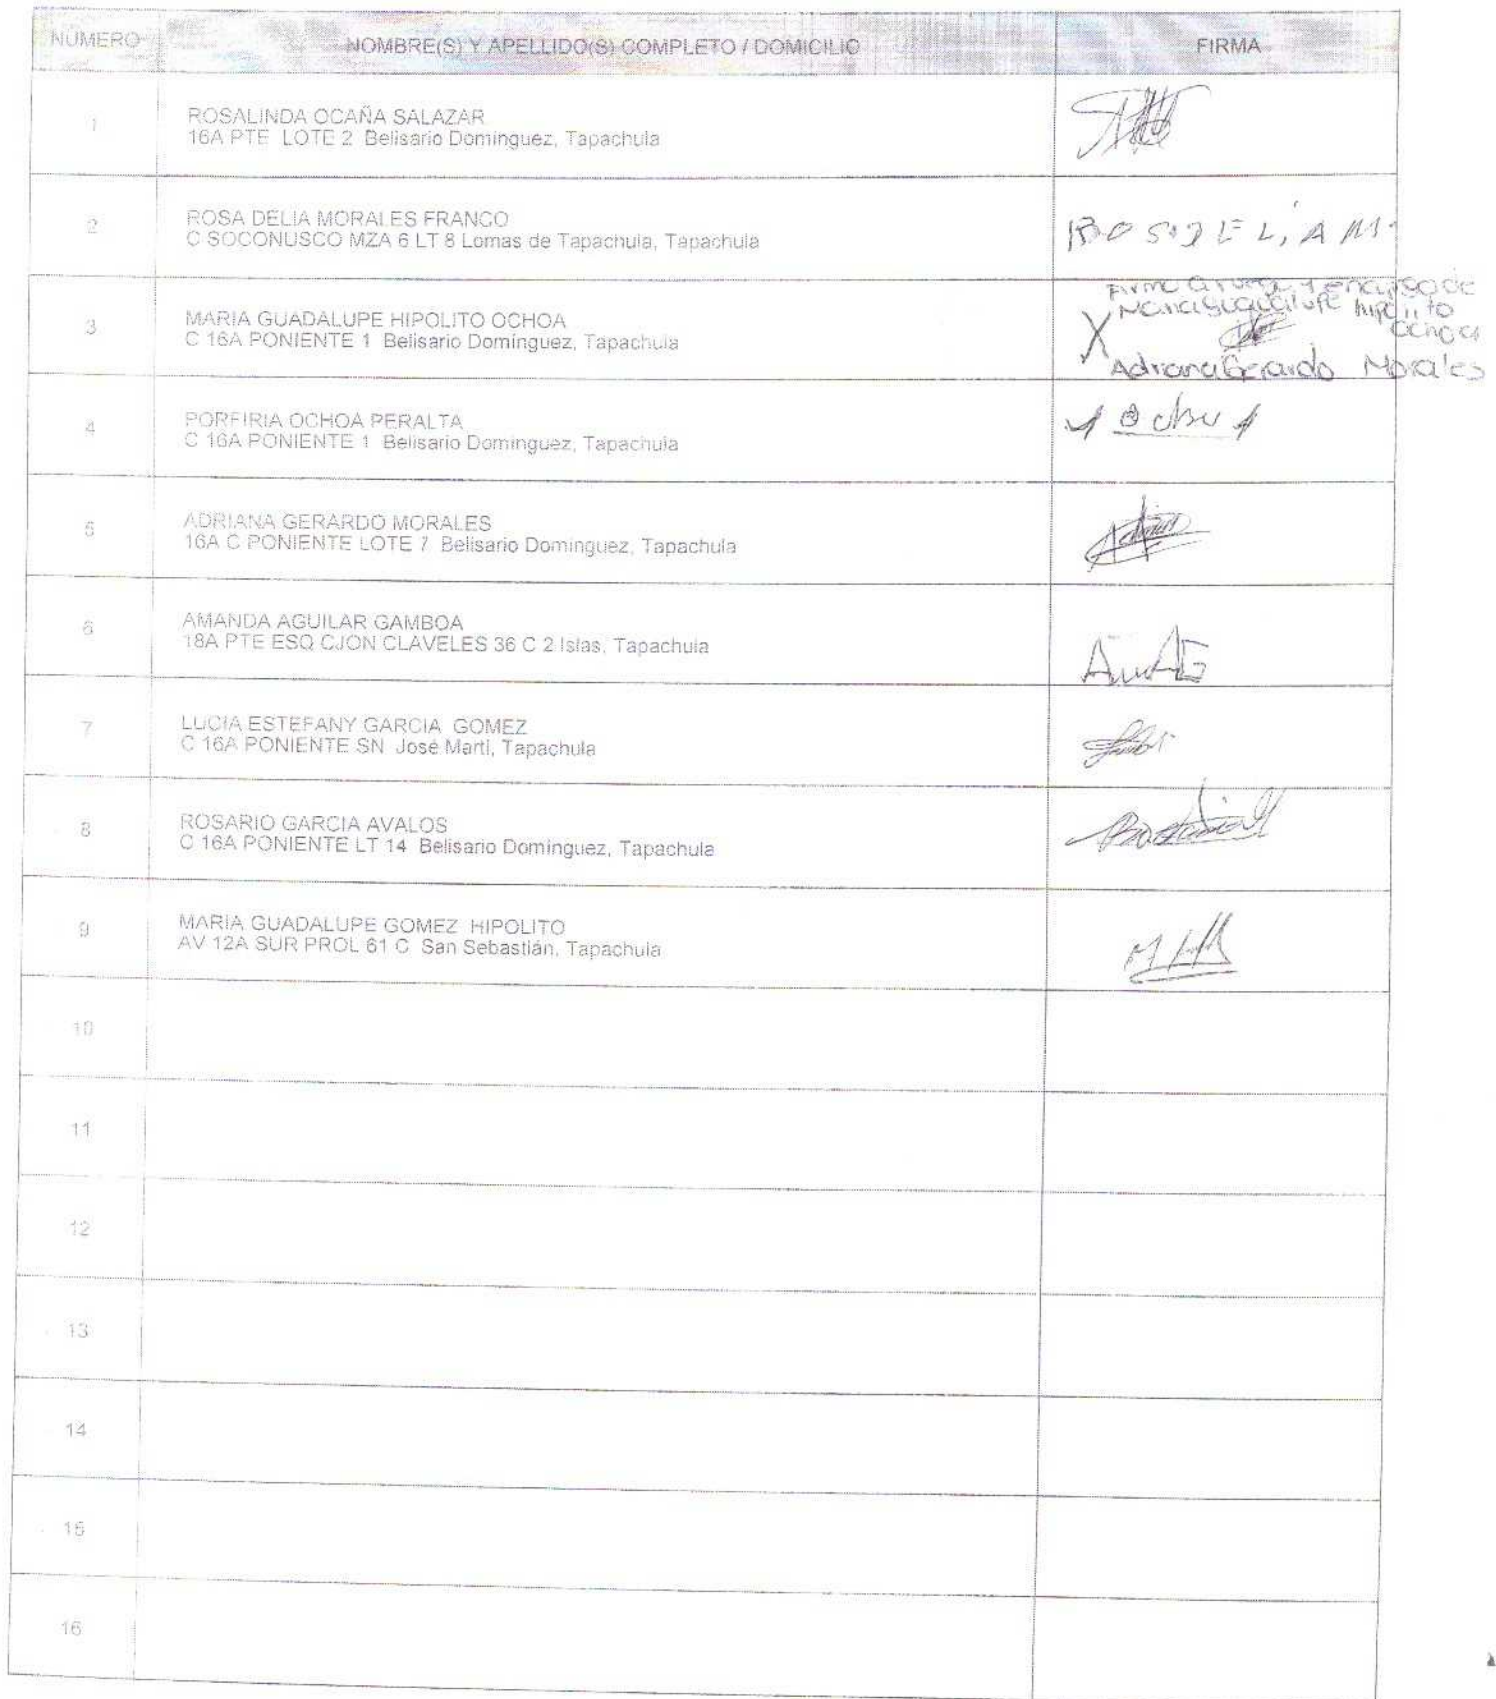 NÚMERO NOMBRE(S) Y APELLIDO(S) COMPLETO / DOMICILIO FIRMA
1 ROSALINDA OCAÑA SALAZAR
16A PTE LOTE 2 Belisario Domínguez, Tapachula
2 ROSA DELIA MORALES FRANCO
C SOCONUSCO MZA 6 LT 8 Lomas de Tapachula, Tapachula
ROSDELIAM
3 MARIA GUADALUPE HIPOLITO OCHOA
C 16A PONIENTE 1 Belisario Domínguez, Tapachula
Firmo a ruego y encargo de
Maria guadalupe hipolito
ochoa
X
Adriana Gerardo Morales
4 PORFIRIA OCHOA PERALTA
C 16A PONIENTE 1 Belisario Domínguez, Tapachula
5 ADRIANA GERARDO MORALES
16A C PONIENTE LOTE 7 Belisario Domínguez, Tapachula
6 AMANDA AGUILAR GAMBOA
18A PTE ESQ CJON CLAVELES 36 C 2 Islas, Tapachula
AmAG
7 LUCIA ESTEFANY GARCIA GOMEZ
C 16A PONIENTE SN José Martí, Tapachula
8 ROSARIO GARCIA AVALOS
C 16A PONIENTE LT 14 Belisario Domínguez, Tapachula
9 MARIA GUADALUPE GOMEZ HIPOLITO
AV 12A SUR PROL 61 C San Sebastián, Tapachula
10
11
12
13
14
15
16